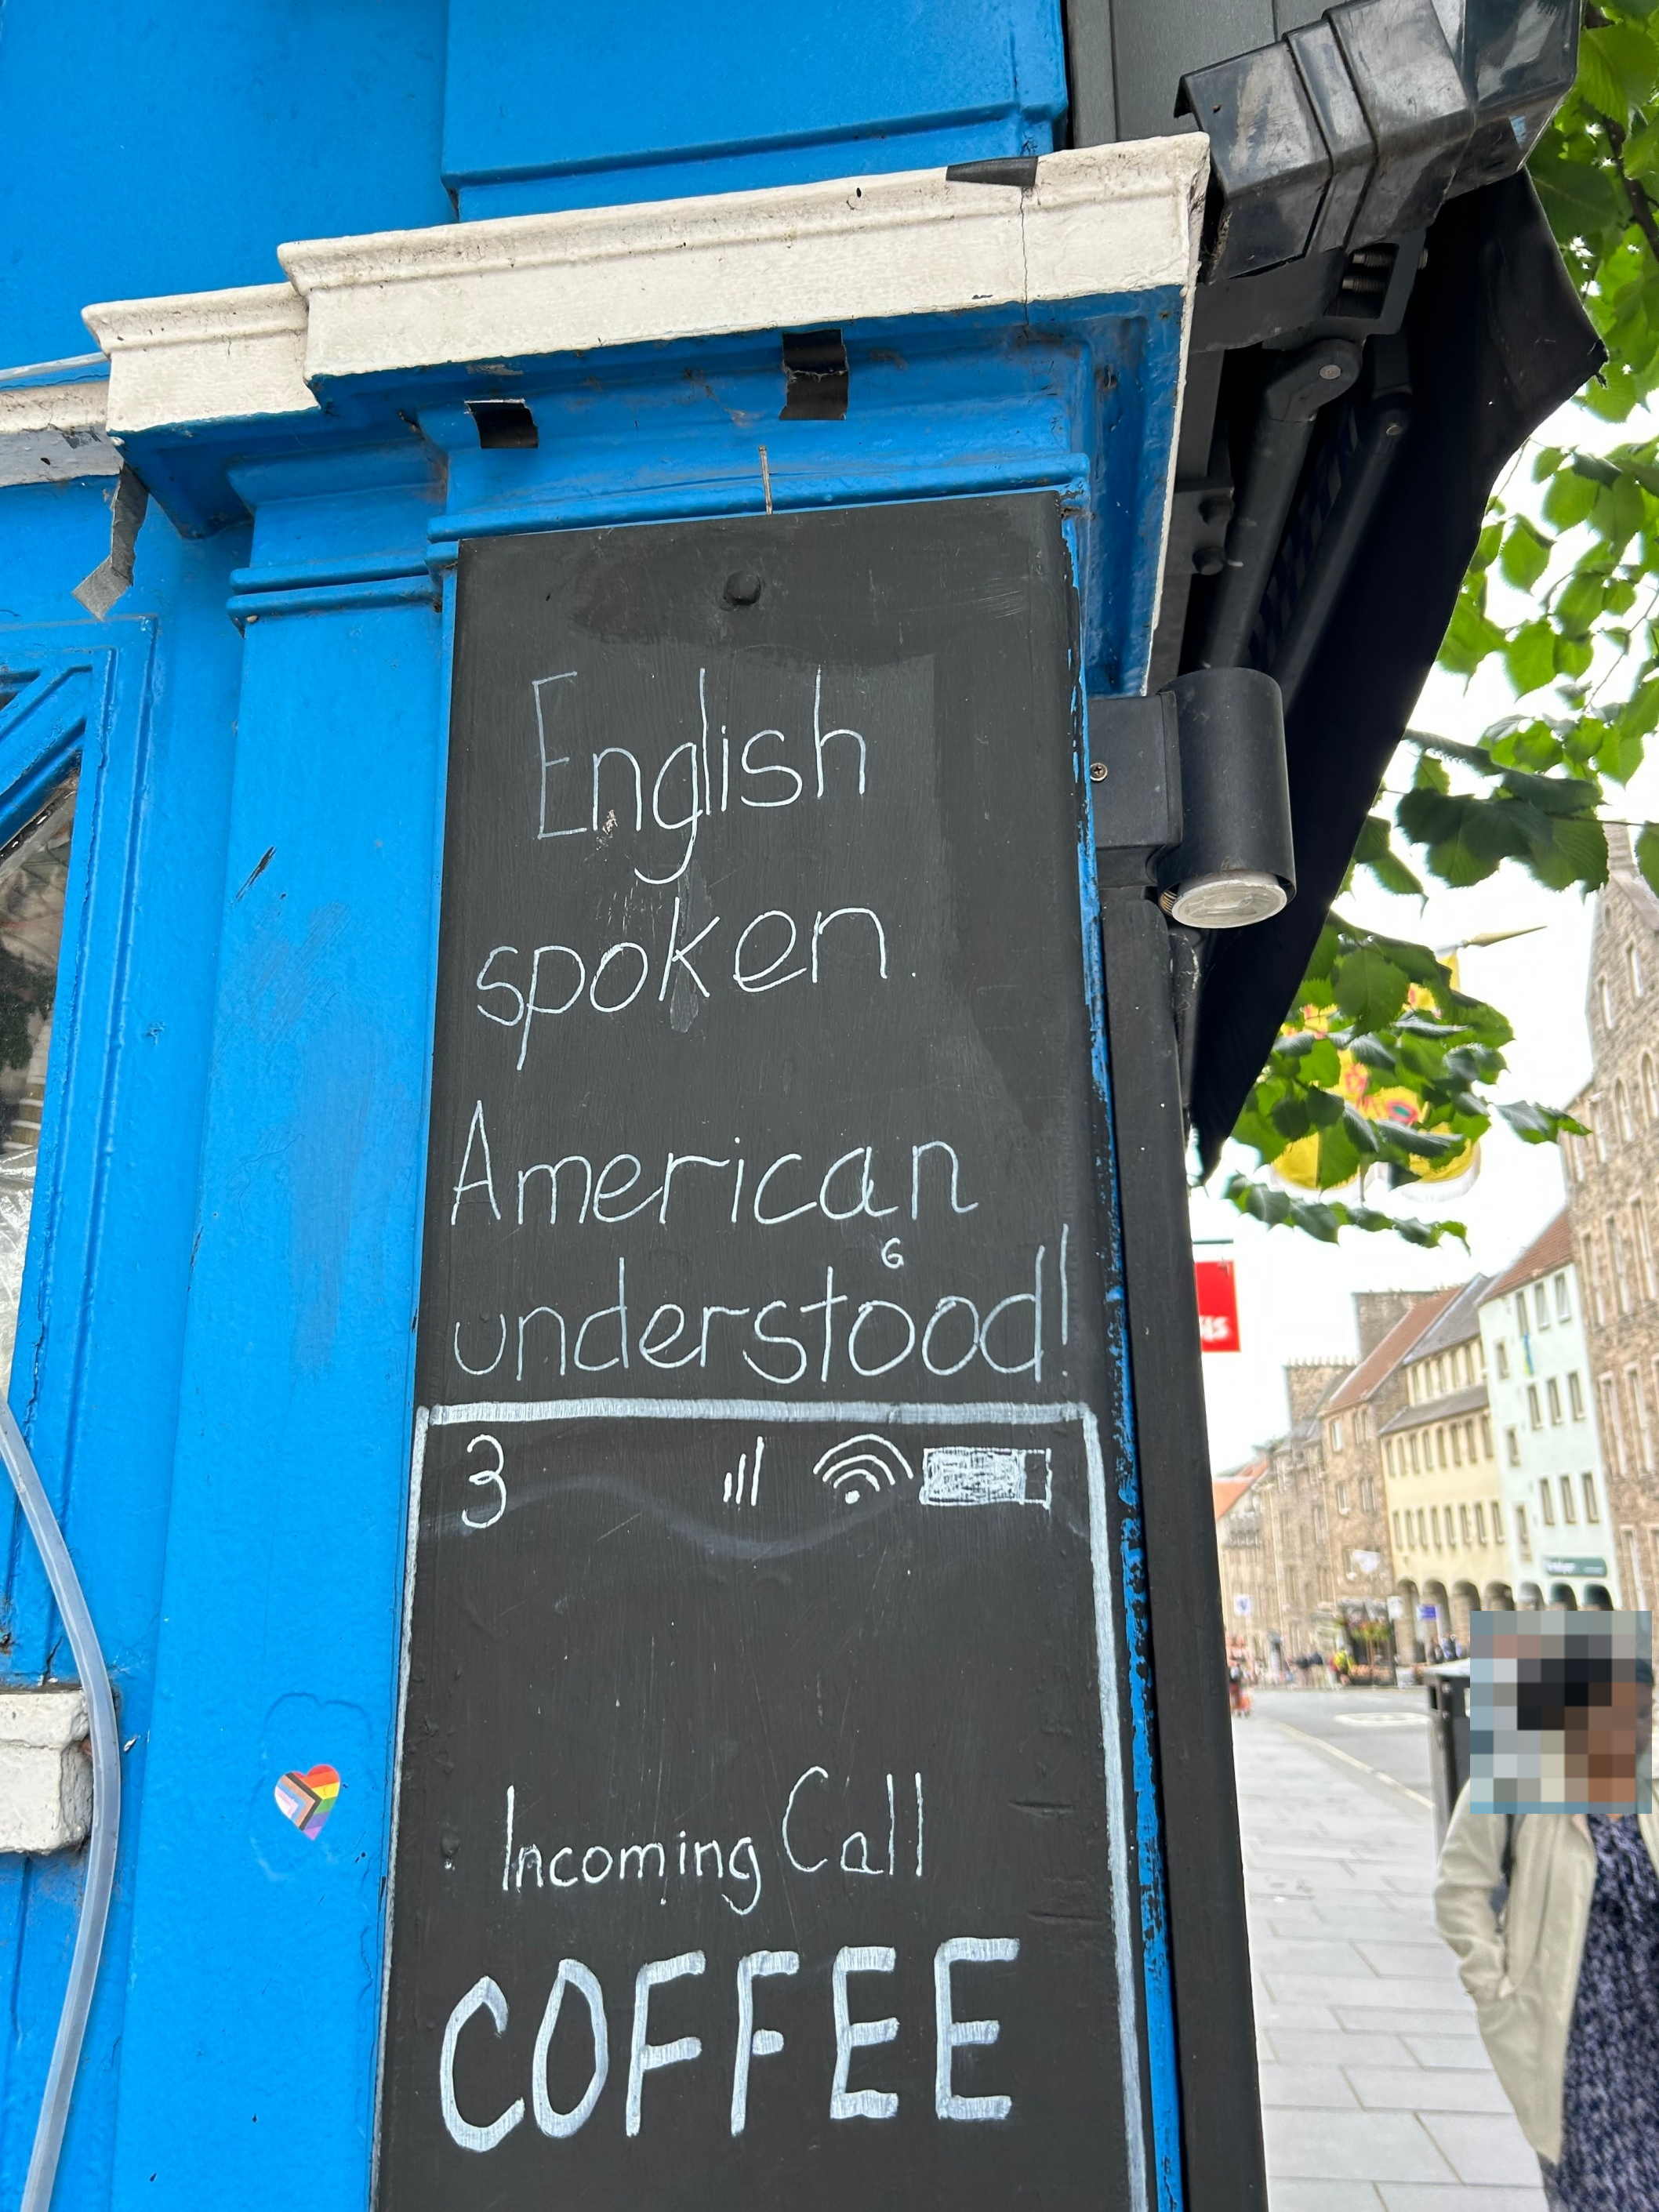 English
spoken.
American
G
understood!
3
Incoming Call
COFFEE